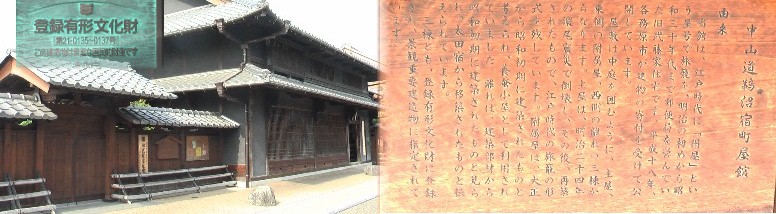 登録有形文化財
第21-0135~0137号
この建造物は貴重な国民的財産です
中山道鵜沼宿町屋館
由来
当館は、江戸時代に「絹屋」とい
う屋号で旅籠を、明治の初めから昭
和三十年代まで郵便局を営んでい
た旧武藤家住宅です。平成十八年、
各務原市が建物の寄付を受けて公
開しています。
屋敷は中庭を囲むように、主屋、
東側の附属屋、西側の離れの三棟か
らなります。主屋は、明治二十四年
の濃尾震災で倒壊し、その後、再築
されたもので、江戸時代の旅籠の形
式を残しています。附属屋は、大正
から昭和初期に建築されたものと
考えられ、養蚕小屋として利用され
ていました。離れは、建築部材から
昭和初期に建築されたものと見ら
れ、太田宿から移築されたものと伝
三棟とも、登録有形文化財に登録
され、景観重要建造物に指定されて
います。